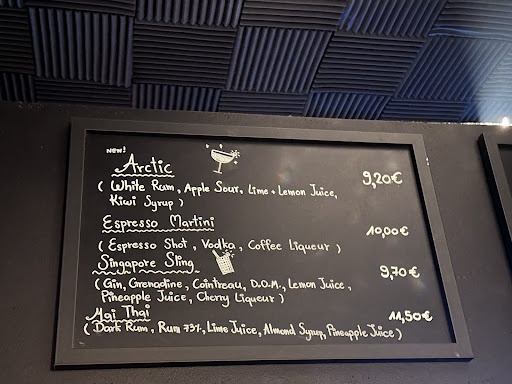 NEW!
Arctic 9,20€
( White Rum, Apple Sour, Lime + Lemon Juice,
Kiwi Syrup )
Espresso Martini 10,00€
( Espresso Shot, Vodka, Coffee Liqueur )
Singapore Sling 9,70€
( Gin, Grenadine, Cointreau, D.O.M., Lemon Juice,
Pineapple Juice, Cherry Liqueur )
Mai Thai 11,50€
( Dark Rum, Rum 73%, Lime Juice, Almond Syrup, Pineapple Juice )